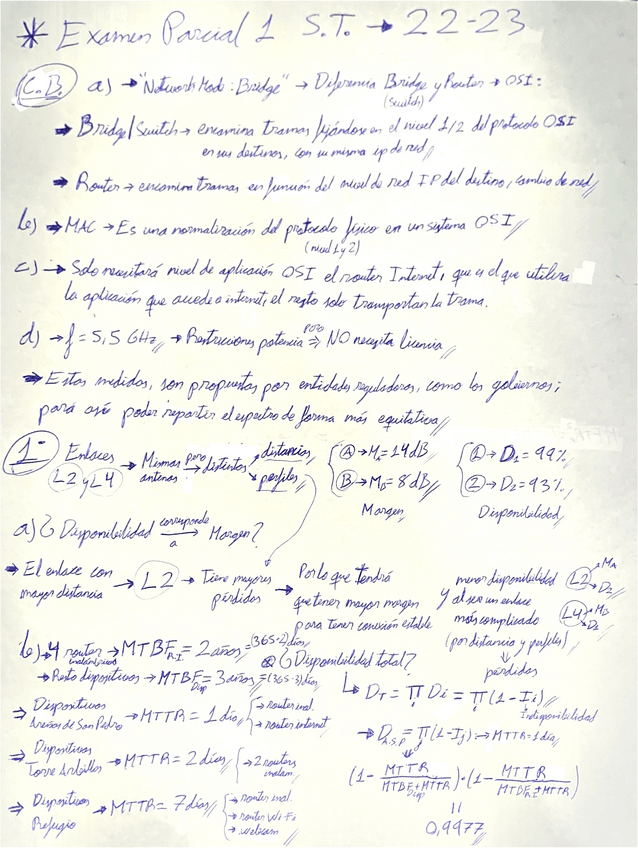 * Examen Parcial 1 S.T. → 22-23
C.B. a) → "Network Mode: Bridge" → Diferencia Bridge y Router → OSI:
(Switch)
→ Bridge/Switch → encamina tramas fijándose en el nivel 1/2 del protocolo OSI
en sus destinos, con su misma ip de red //
→ Router → encamina tramas en función del nivel de red IP del destino, cambio de red //
b) → MAC → Es una normalización del protocolo físico en un sistema OSI //
(nivel 1 y 2)
c) → Solo necesitará nivel de aplicación OSI el router Internet, que es el que utiliza
la aplicación que accede a internet, el resto solo transportan la trama.
d) → f = 5,5 GHz // → Restricciones potencia pero ⇒ NO necesita licencia //
→ Estas medidas, son propuestas por entidades reguladoras, como los gobiernos;
para así poder repartir el espectro de forma más equitativa //
1- Enlaces L2 y L4 → Mismas antenas pero → distintos → distancias // → perfiles //
A → M_A = 14 dB //
B → M_B = 8 dB //
Margen
1 → D_1 = 99% //
2 → D_2 = 93% //
Disponibilidad
a) ¿Disponibilidad corresponde a → Margen?
→ El enlace con mayor distancia → L2 → Tiene mayores pérdidas → Por lo que tendrá
que tener mayor margen
para tener conexión estable
y menor disponibilidad
al ser un enlace
más complicado
(por distancia y perfiles)
pérdidas
L2 → M_A → D_2
L4 → M_B → D_1
b) → 4 router inalámbricos → MTBF_R.I = 2 años = (365·2) días
→ Resto dispositivos → MTBF_Disp = 3 años = (365·3) días
¿Disponibilidad total?
↳ D_T = ∏ Di = ∏ (1 - Ii)
Indisponibilidad
→ D_A.S.P = ∏ (1 - Ij) → MTTR = 1 día //
(1 - MTTR / MTBF_Disp + MTTR) · (1 - MTTR / MTBF_R.I + MTTR)
=
0,9977 //
⇒ Dispositivos Arenas de San Pedro → MTTR = 1 día // → router inal. → router internet
⇒ Dispositivos Torre Arbillos → MTTR = 2 días // → 2 routers inalam.
⇒ Dispositivos Refugio → MTTR = 7 días // → router inal. → router Wi-Fi → webcam